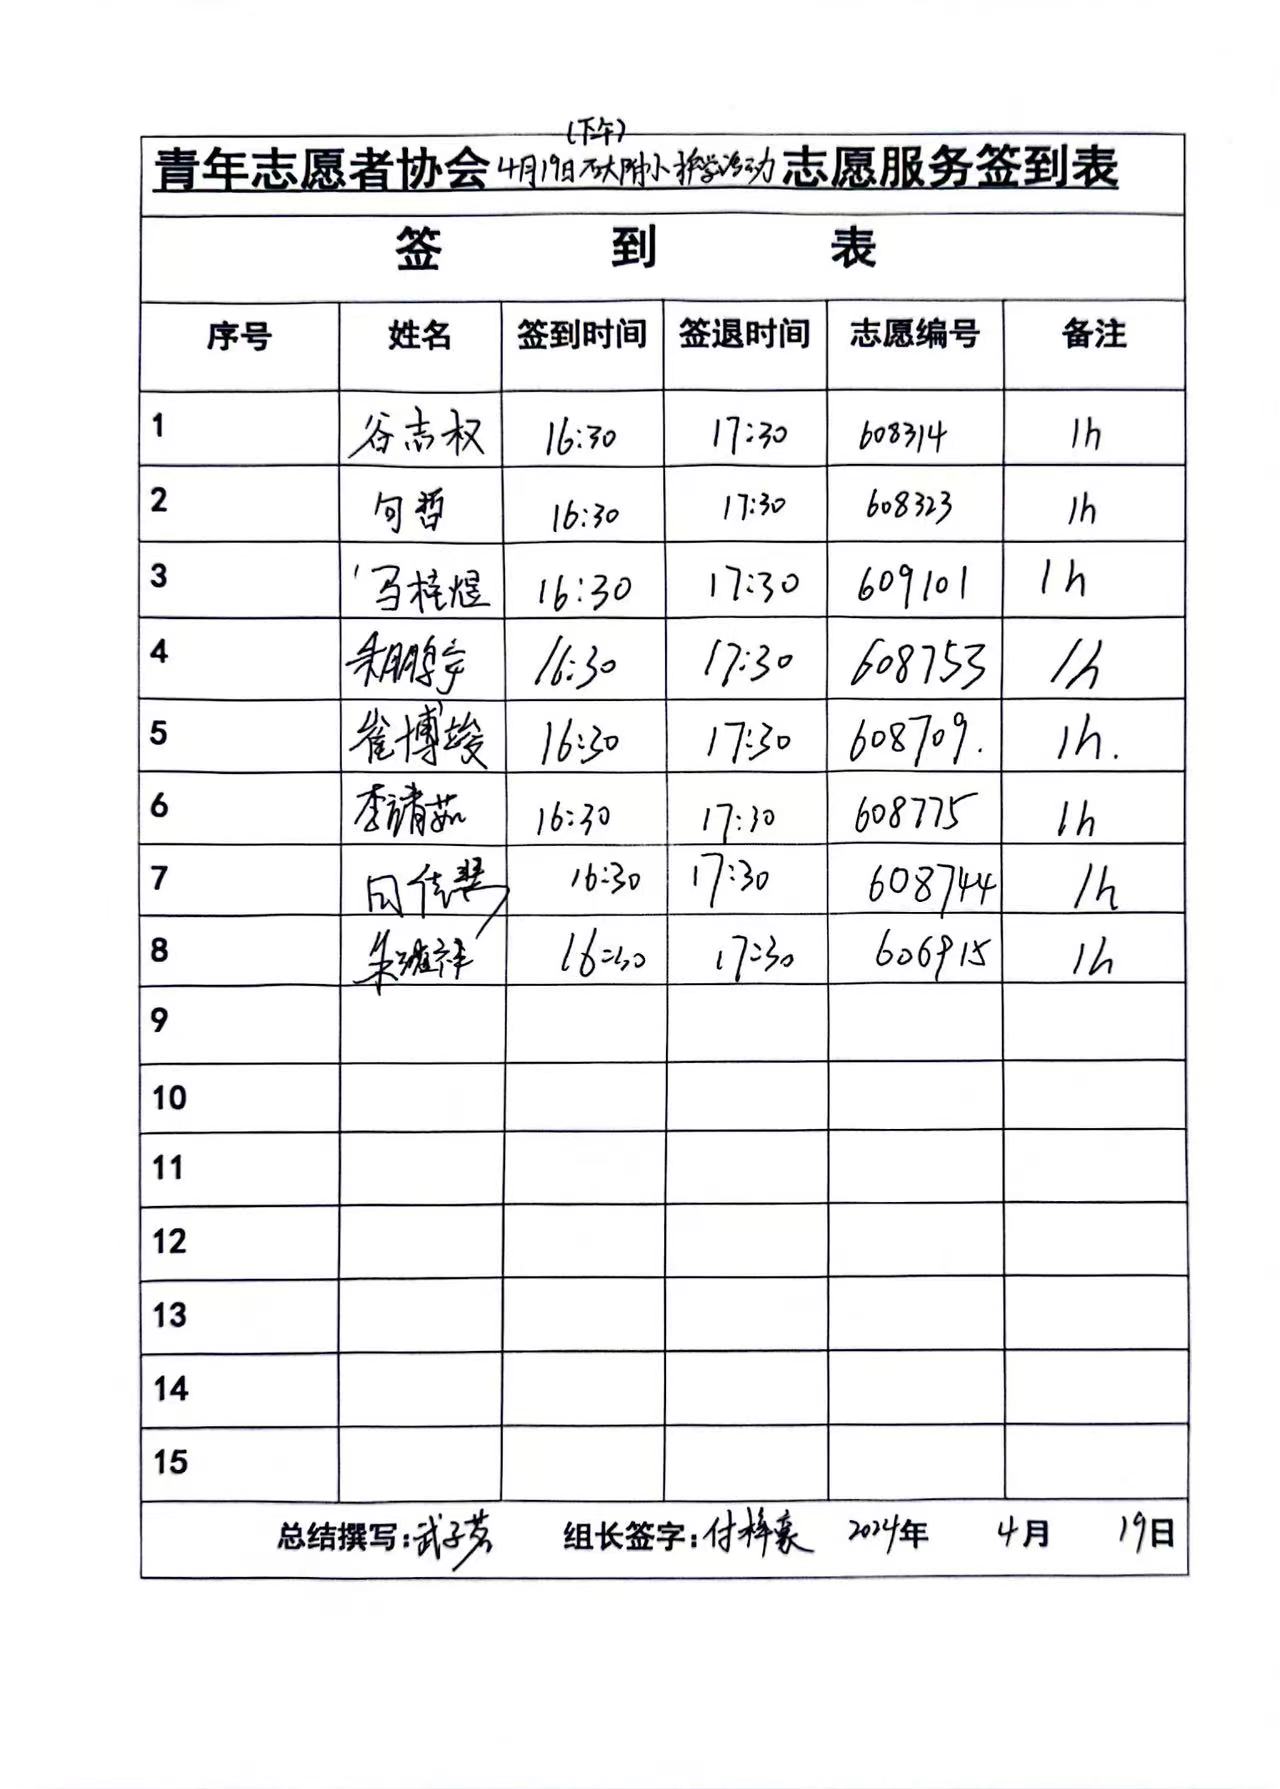 (下午)
青年志愿者协会4月19日石大附小护学活动志愿服务签到表
签 到 表
序号 姓名 签到时间 签退时间 志愿编号 备注
1 谷志权 16:30 17:30 608314 1h
2 句哲 16:30 17:30 608323 1h
3 马梓煜 16:30 17:30 609101 1h
4 朱鹏宇 16:30 17:30 608753 1h
5 崔博竣 16:30 17:30 608709. 1h.
6 李靖茹 16:30 17:30 608775 1h
7 16:30 17:30 608744 1h
8 16:30 17:30 606915 1h
9
10
11
12
13
14
15
总结撰写:武子茗 组长签字:付梓豪 2024年 4月 19日